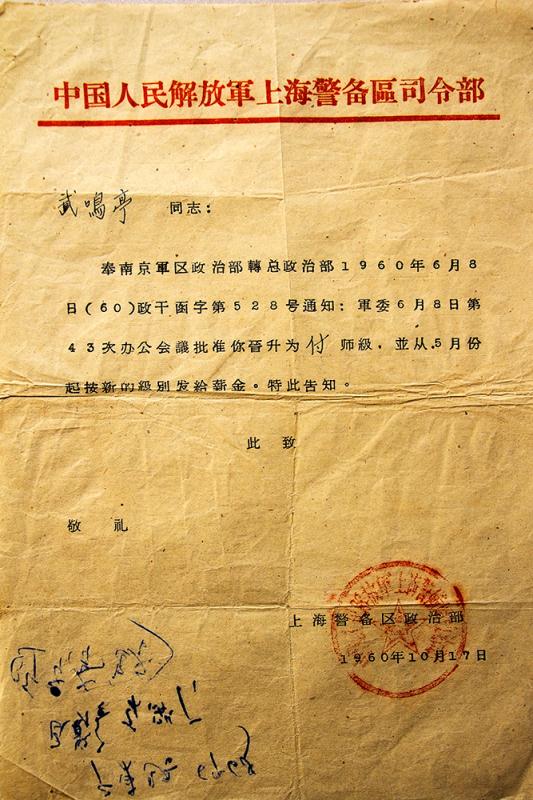 中国人民解放軍上海警备區司令部
武鳴亭 同志：
奉南京軍区政治部轉总政治部1960年6月8
日(60)政干函字第528号通知：軍委6月8日第
43次办公会議批准你晉升为付师級，並从5月份
起按新的級別发給薪金。特此告知。
此致
敬礼
上海警备区政治部
1960年10月17日